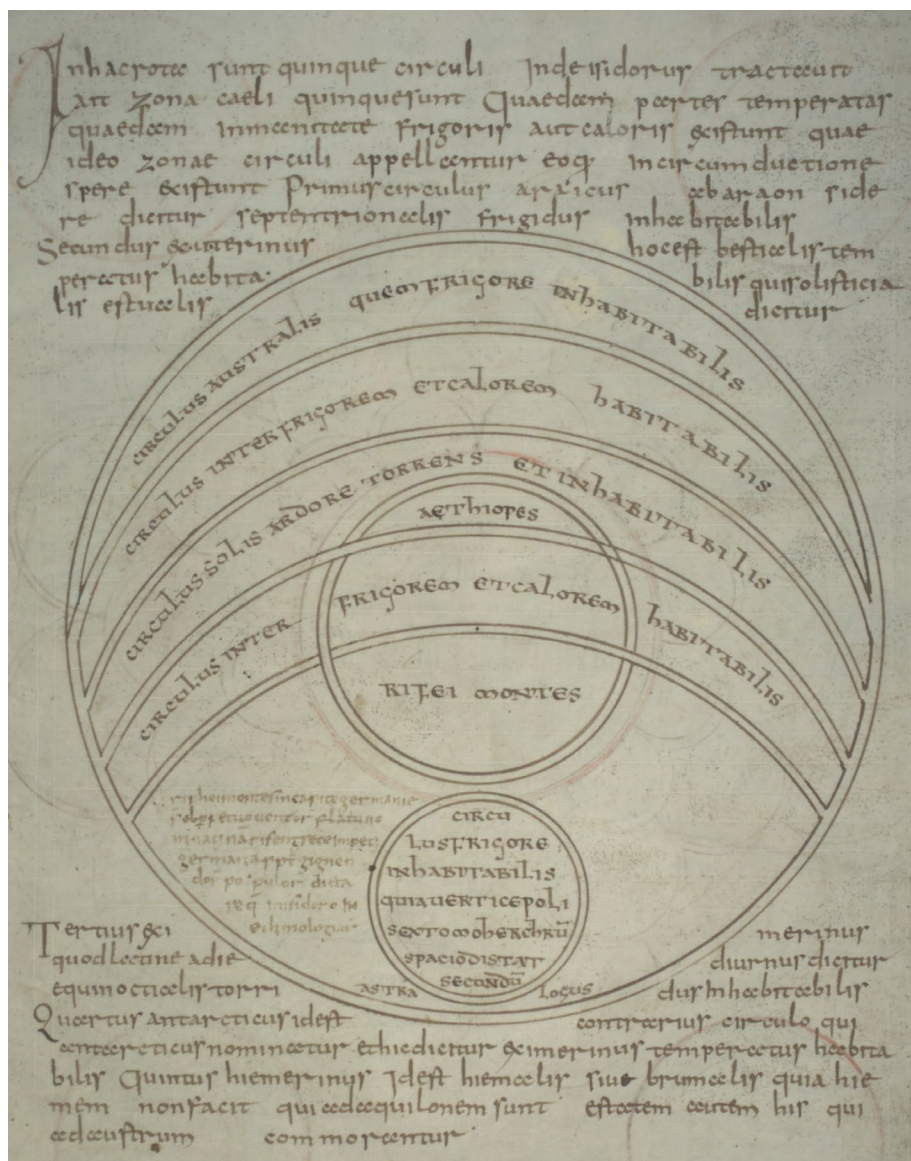 Inhacrotae sunt quinque circuli Inde isidorus tractauit
ait zona caeli quinque sunt Quaedam partes temperatas
quaedam inmanitate frigoris aut caloris existunt quae
ideo zonae circuli appellantur eoq; in circumductione
spere existunt Primus circulus arcticus ab araon side
re dicitur septentrionalis frigidus inhabitabilis
Secundus exiterinus hoc est bestialis tem
peratus habita bilis qui solisticia
lis estualis dicitur
circulus australis quem frigore inhabitabilis
circulus inter frigorem et calorem habitabilis
circulus solis ardore torrens et inhabitabilis
aethiopes
circulus inter frigorem et calorem habitabilis
rifei montes
riphei montes in capite germanie
germania
dicta
isidoro in
circu
lus frigore
inhabitabilis
quia uertice poli
sexto
spacio distat
secundū
astra locus
Tertius exi merinus
quod latine a die diurnus dicitur
equinoctialis torri dus Inhabitabilis
Quartus antarcticus id est contrarius circulo qui
antarcticus nominatur et hic dicitur eximerinus temperatus habita
bilis Quintus hiemerinus Idest hiemalis siue brumalis quia hie
mem non facit qui ad aquilonem sunt estatem autem his qui
ad austrum commorantur